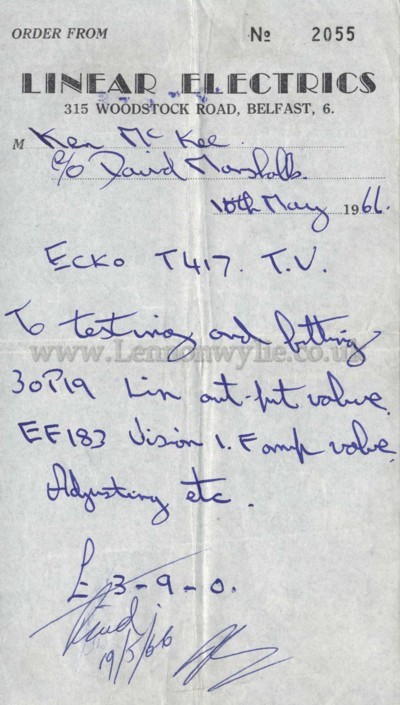 ORDER FROM № 2055
LINEAR ELECTRICS
315 WOODSTOCK ROAD, BELFAST, 6.
M Ken McKee
c/o David Marshalls.
10th May 1966.
Ecko T417. T.V.
To testing and fitting
www.Lennonwylie.co.uk
30P19 Lin out-put valve.
EF183 Vision I.F amp valve.
Adjusting etc.
£3-9-0.
19/5/66